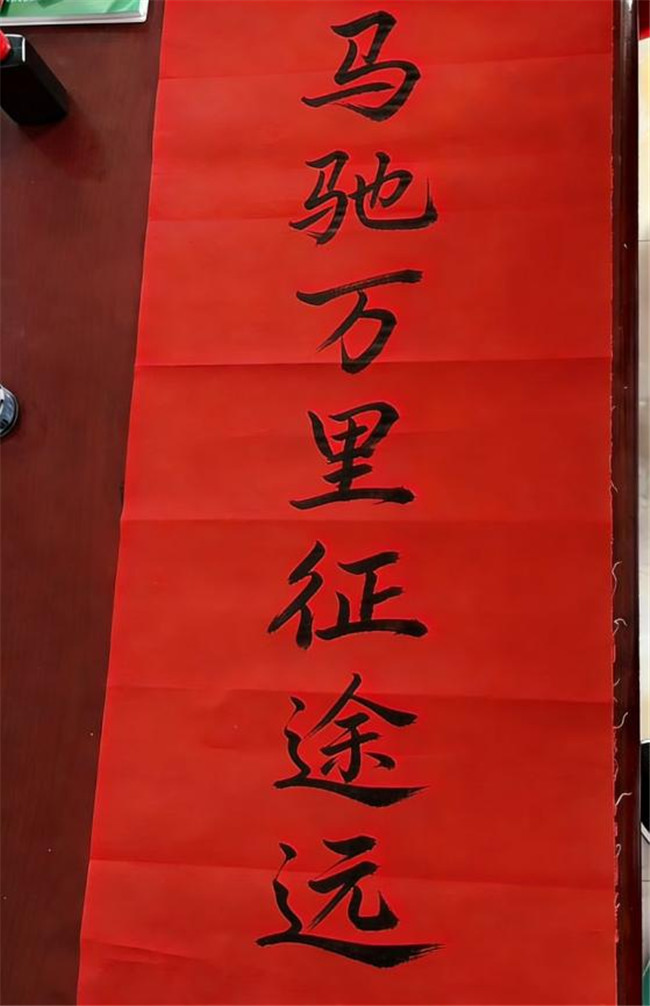 马驰万里征途远